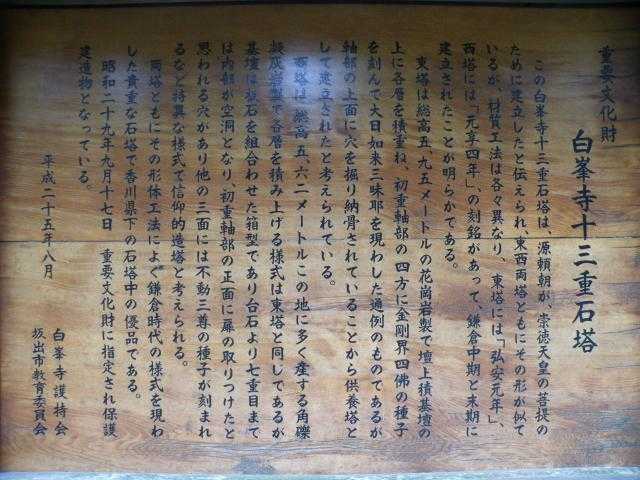 重要文化財
白峯寺十三重石塔
この白峯寺十三重石塔は、源頼朝が、崇徳天皇の菩提の
ために建立したと伝えられ、東西両塔ともにその形が似て
いるが、材質工法は各々異なり、東塔には「弘安元年」、
西塔には「元享四年」の刻銘があって、鎌倉中期と末期に
建立されたことが明らかである。
東塔は総高五、九五メートルの花崗岩製で壇上積基壇の
上に各層を積重ね、初重軸部の四方に金剛界四佛の種子
を刻んで大日如来三昧耶を現わした通例のものであるが
軸部の上面に穴を掘り納骨されていることから供養塔と
して建立されたと考えられている。
西塔は総高五、六二メートルこの地に多く産する角礫
凝灰岩製で各層を積み上げる様式は東塔と同じであるが
基壇は板石を組合わせた箱型であり台石より七重目まで
は内部が空洞となり、初重軸部の正面に扉の取りつけたと
思われる穴があり他の三面には不動三尊の種子が刻まれ
るなど特異な様式で信仰的造塔と考えられる。
両塔ともにその形体工法によく鎌倉時代の様式を現わ
した貴重な石塔で香川県下の石塔中の優品である。
昭和二十九年九月十七日 重要文化財に指定され保護
建造物となっている。
平成二十五年八月
白峯寺護持会
坂出市教育委員会